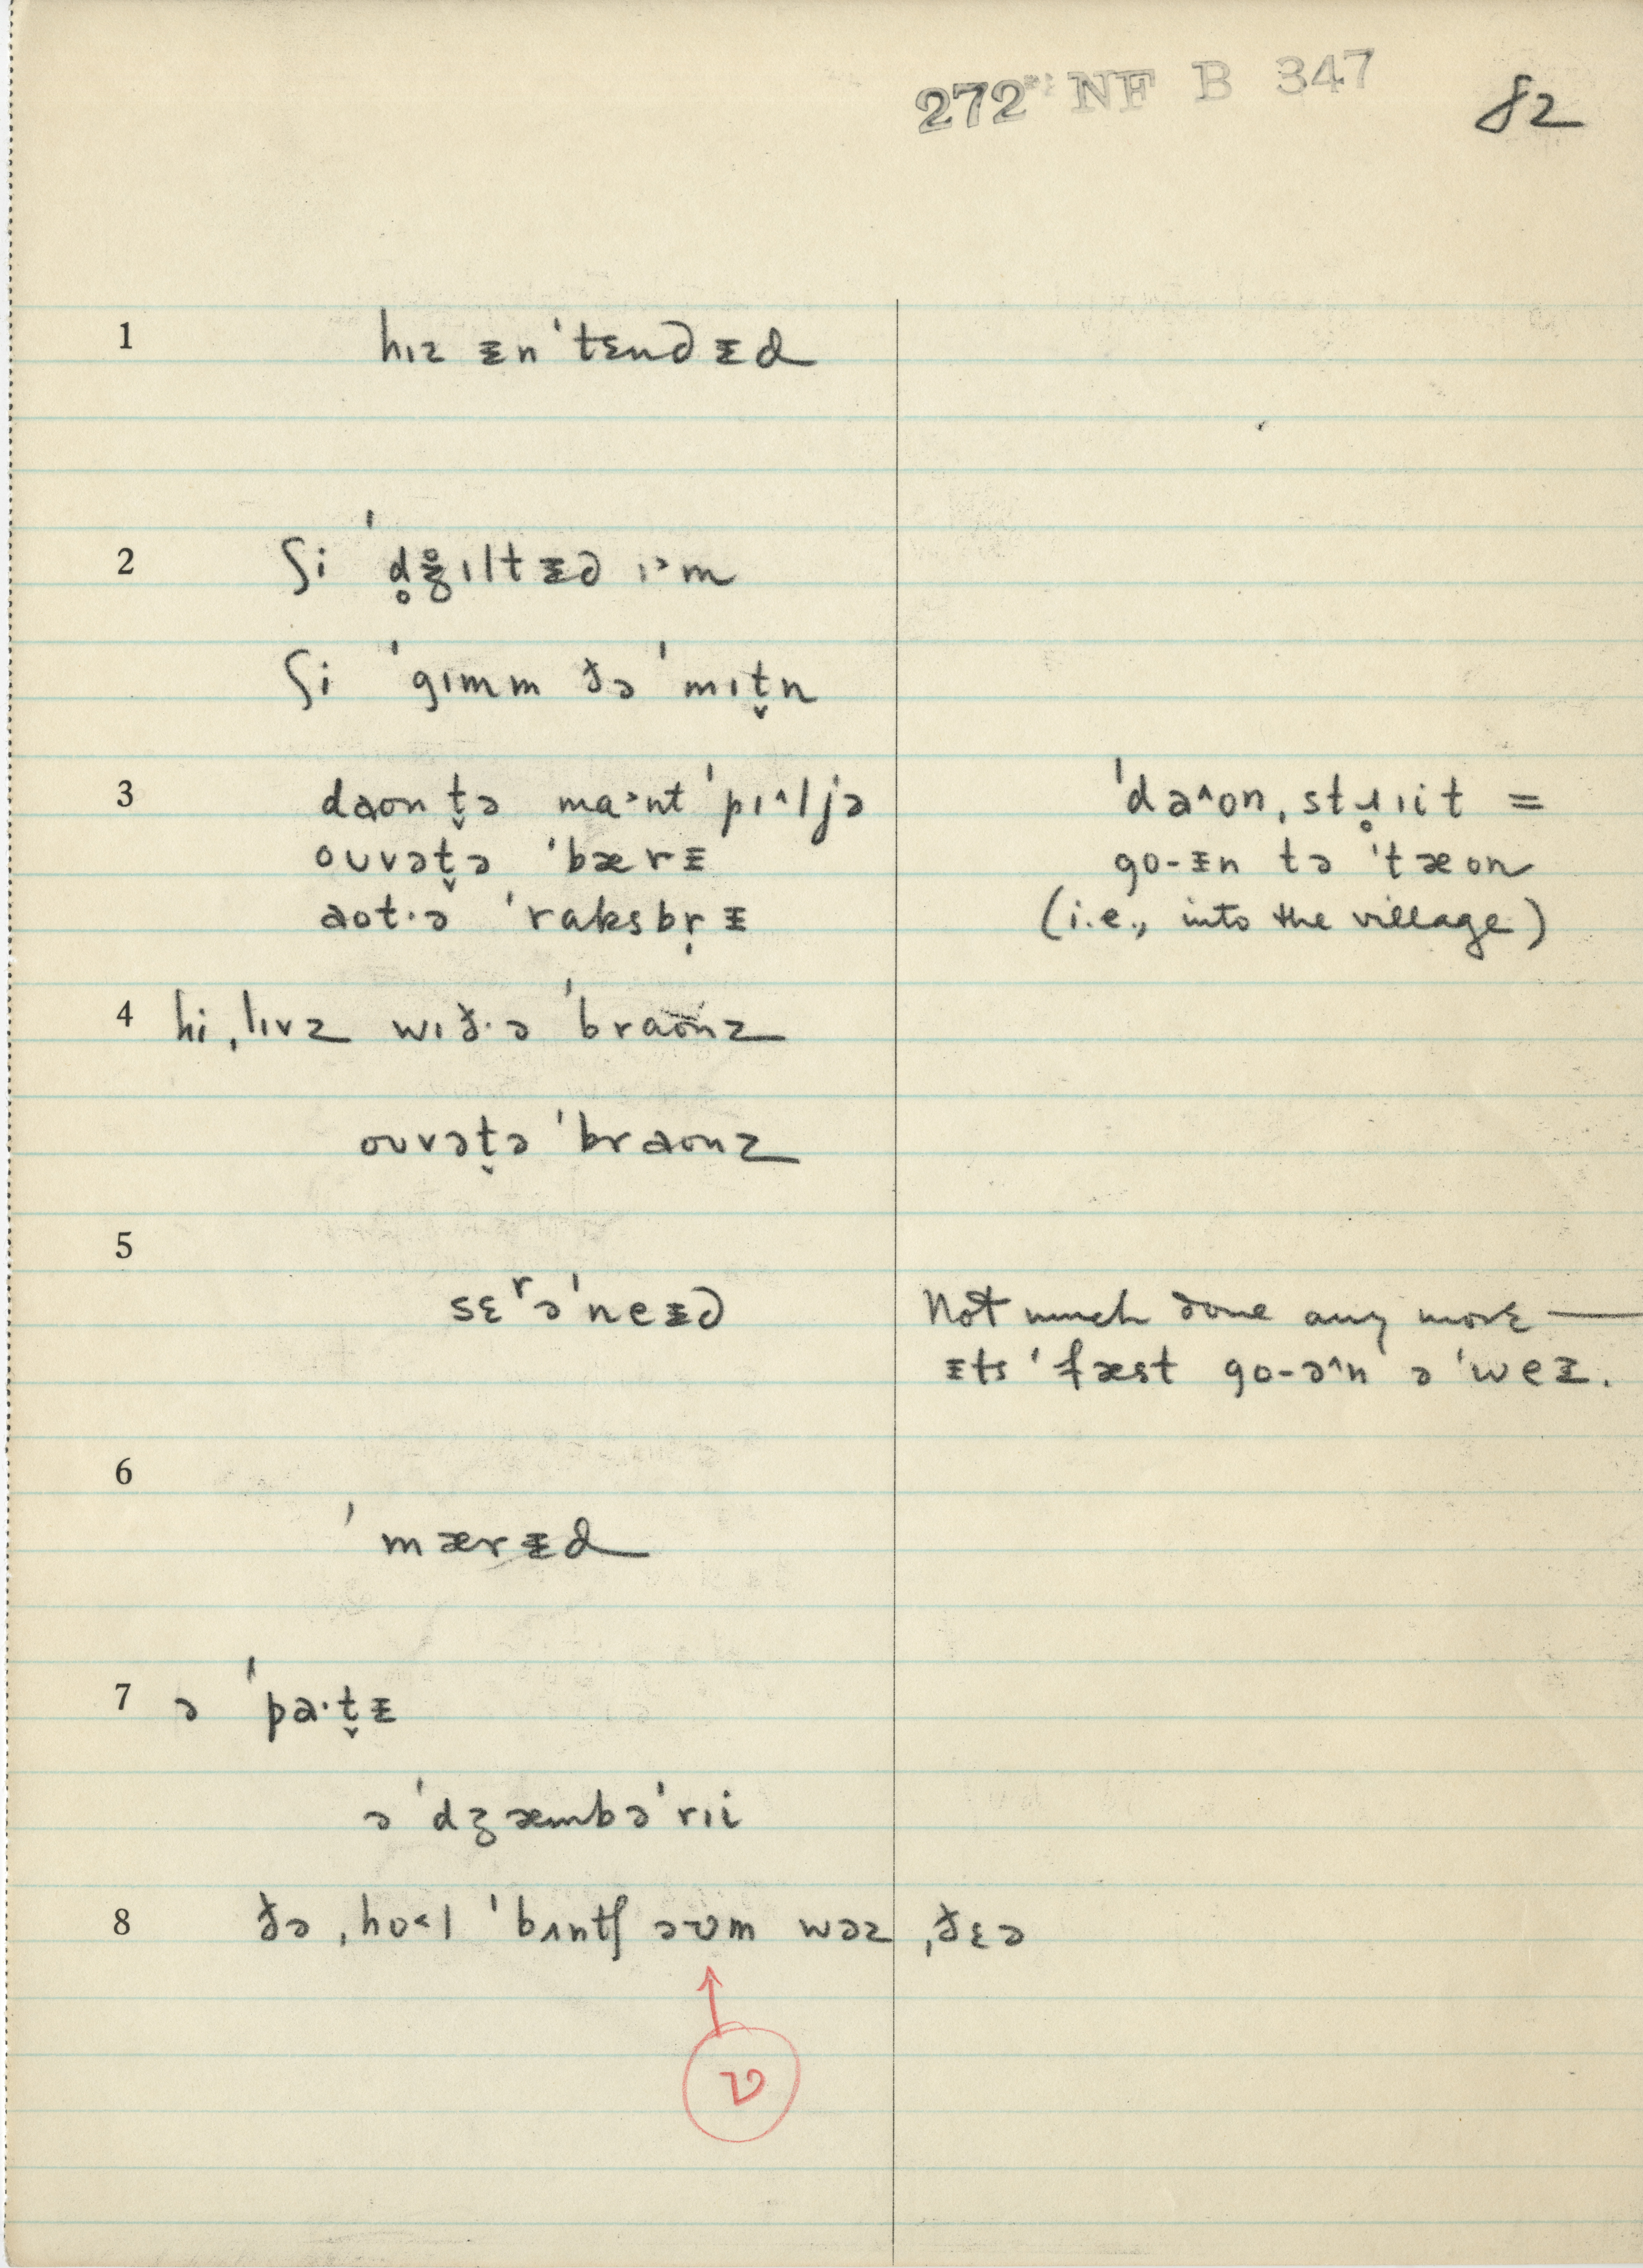 272 NF B 347
82
1 hɪz ᵻn ˈtɛndᵻd
2 ʃi ˈd̥ʒ̊ɪltᵻd ɪ˃m
ʃi ˈgɪmm ðə ˈmɪt̬n
3 daʊn t̬ə ma˃ntˈpɪ˄ljə
oʊvət̬ə ˈbærᵻ
aʊt·ə ˈraksbr̩ᵻ
ˈda˄ʊn ˌstɹ̥ɪit =
go-ᵻn tə ˈtæʊn
(i.e., into the village)
4 hi ˌlɪvz wɪð·ə ˈbraʊnz
oʊvət̬ə ˈbraʊnz
5 sɛʳəˈneᵻd
Not much done any more —
ᵻts ˈfæst go-ə˄n əˈweᵻ.
6 ˈmærᵻd
7 ə ˈpa·t̬ᵻ
ə ˈdʒæmbəˈrɪi
8 ðə ˌho˂l ˈbʌntʃ əʊm wəz ˌðɛə
ʋ